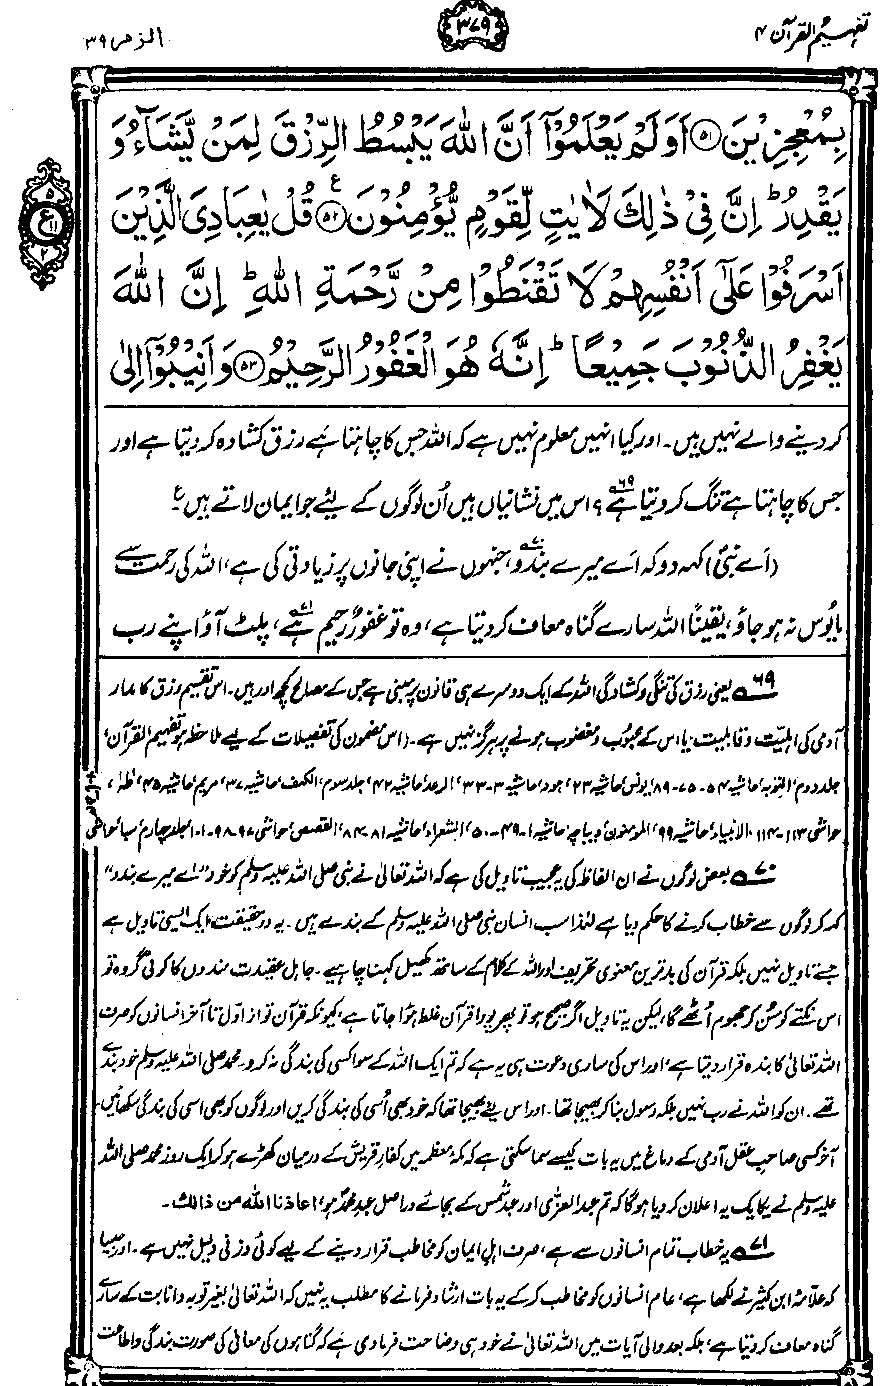 تفہیم القرآن ۴
۳۷۹
الزمر ۳۹
بِمُعْجِزِيْنَ ۵۱ اَوَلَمْ يَعْلَمُوْٓا اَنَّ اللّٰهَ يَبْسُطُ الرِّزْقَ لِمَنْ يَّشَآءُ وَ
يَقْدِرُ ؕ اِنَّ فِيْ ذٰلِكَ لَاٰيٰتٍ لِّقَوْمٍ يُّؤْمِنُوْنَ ۵۲ ع قُلْ يٰعِبَادِيَ الَّذِيْنَ
اَسْرَفُوْا عَلٰٓى اَنْفُسِهِمْ لَا تَقْنَطُوْا مِنْ رَّحْمَةِ اللّٰهِ ؕ اِنَّ اللّٰهَ
يَغْفِرُ الذُّنُوْبَ جَمِيْعًا ؕ اِنَّهٗ هُوَ الْغَفُوْرُ الرَّحِيْمُ ۵۳ وَاَنِيْبُوْٓا اِلٰى
۵
ع ۱۱
۲
کر دینے والے نہیں ہیں۔ اور کیا انہیں معلوم نہیں ہے کہ اللہ جس کا چاہتا ہے رزق کشادہ کر دیتا ہے اور
جس کا چاہتا ہے تنگ کر دیتا ہے؟ ۶۹ اس میں نشانیاں ہیں اُن لوگوں کے لیے جو ایمان لاتے ہیں ع
(اَے نبیؐ) کہہ دو کہ اَے میرے بندو، ۷۰ جنہوں نے اپنی جانوں پر زیادتی کی ہے، اللہ کی رحمت سے
مایُوس نہ ہو جاؤ، یقینًا اللہ سارے گناہ معاف کر دیتا ہے، وہ تو غفورٌ رحیم ہے، ۷۱ پلٹ آؤ اپنے رب
۶۹ یعنی رزق کی تنگی و کشادگی اللہ کے ایک دوسرے ہی قانون پر مبنی ہے جس کے مصالح کچھ اور ہیں۔ اس تقسیم رزق کا مدار
آدمی کی اہلیّت و قابلیت، یا اس کے محبُوب و مغضوب ہونے پر ہرگز نہیں ہے۔ (اس مضمون کی تفصیلات کے لیے ملاحظہ ہو تفہیم القرآن،
جلد دوم، التوبہ، حاشیہ ۵۴-۷۵-۸۹، یونس، حاشیہ ۲۳، ہود، حاشیہ ۳-۳۳، الرعد، حاشیہ ۴۲، جلد سوم، الکہف، حاشیہ ۳۷، مریم، حاشیہ ۴۵، طٰہٰ،
حواشی ۱۱۳-۱۱۴، الانبیاء، حاشیہ ۹۹، المومنون، دیباچہ، حاشیہ ۱-۴۹-۵۰، الشعراء، حاشیہ ۸۱-۸۴، القصص، حواشی ۹۷-۹۸-۱۰۱، جلد چہارم، سبا، حواشی
۷۰ بعض لوگوں نے ان الفاظ کی یہ عجیب تاویل کی ہے کہ اللہ تعالیٰ نے نبی صلی اللہ علیہ وسلم کو خود "اے میرے بندو"
کہہ کر لوگوں سے خطاب کرنے کا حکم دیا ہے لہٰذا سب انسان نبی صلی اللہ علیہ وسلم کے بندے ہیں۔ یہ درحقیقت ایک ایسی تاویل ہے
جسے تاویل نہیں بلکہ قرآن کی بدترین معنوی تحریف اور اللہ کے کلام کے ساتھ کھیل کہنا چاہیے۔ جاہل عقیدت مندوں کا کوئی گروہ تو
اس نکتے کو سُن کر جھوم اُٹھے گا، لیکن یہ تاویل اگر صحیح ہو تو پھر پورا قرآن غلط ہوا جاتا ہے، کیونکہ قرآن تو از اوّل تا آخر انسانوں کو صرف
اللہ تعالیٰ کا بندہ قرار دیتا ہے، اور اس کی ساری دعوت ہی یہ ہے کہ تم ایک اللہ کے سوا کسی کی بندگی نہ کرو۔ محمد صلی اللہ علیہ وسلم خود بندے
تھے۔ ان کو اللہ نے رب نہیں بلکہ رسول بنا کر بھیجا تھا۔ اور اس لیے بھیجا تھا کہ خود بھی اُسی کی بندگی کریں اور لوگوں کو بھی اسی کی بندگی سکھائیں
آخر کسی صاحبِ عقل آدمی کے دماغ میں یہ بات کیسے سما سکتی ہے کہ مکہ معظمہ میں کفار قریش کے درمیان کھڑے ہو کر ایک روز محمد صلی اللہ
علیہ وسلم نے یکایک یہ اعلان کر دیا ہوگا کہ تم عبد العزّٰی اور عبد شمس کے بجائے دراصل عبد محمدؐ ہو، اعاذنا اللہ من ذالک۔
۷۱ یہ خطاب تمام انسانوں سے ہے، صرف اہل ایمان کو مخاطب قرار دینے کے لیے کوئی وزنی دلیل نہیں ہے۔ اور جیسا
کہ علامہ ابن کثیر نے لکھا ہے، عام انسانوں کو مخاطب کر کے یہ بات ارشاد فرمانے کا مطلب یہ نہیں کہ اللہ تعالیٰ بغیر توبہ و انابت کے سارے
گناہ معاف کر دیتا ہے، بلکہ بعد والی آیات میں اللہ تعالیٰ نے خود ہی وضاحت فرما دی ہے کہ گناہوں کی معافی کی صورت بندگی و اطاعت